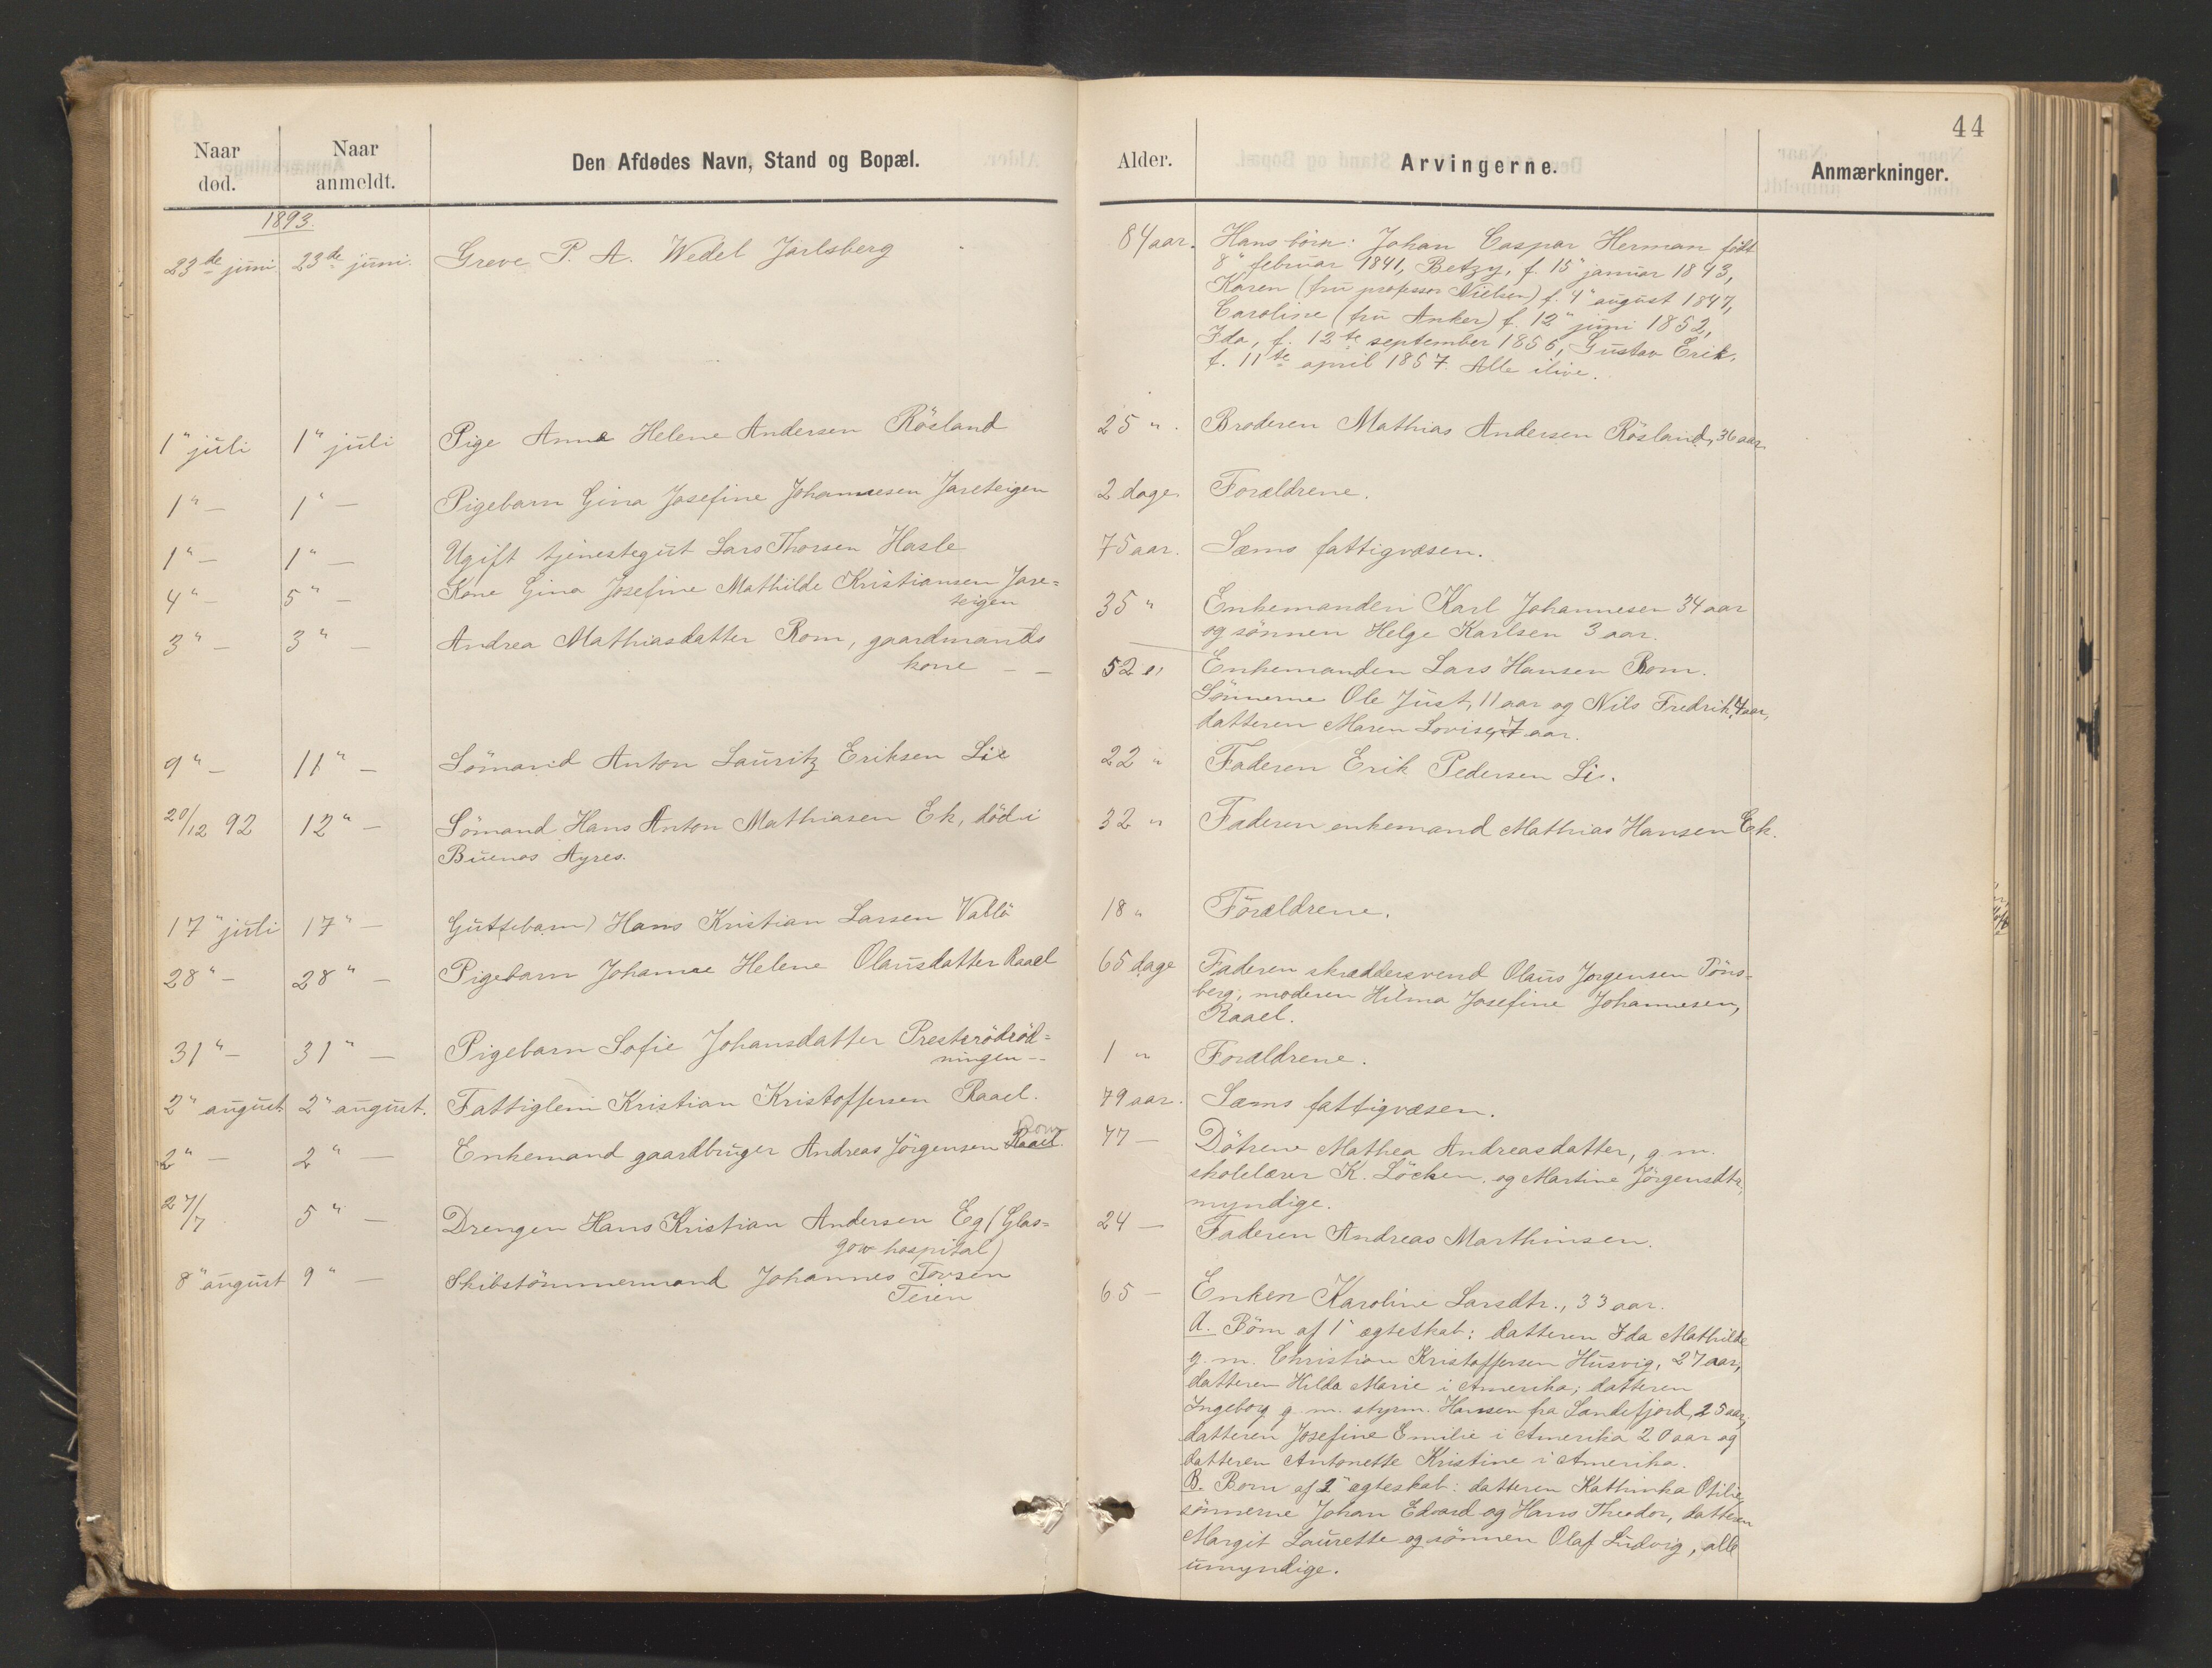 44
Naar død.
Naar anmeldt.
Den Afdødes Navn, Stand og Bopæl.
Alder.
Arvingerne.
Anmærkninger.
1893.
23de juni 23de juni. Greve P. A. Wedel Jarlsberg
84 aar. Hans börn: Johan Caspar Herman födt
8" februar 1841, Betzy, f. 15" januar 1843,
Karen (fru professor Nielsen) f. 4" august 1847,
Caroline (fru Anker) f. 12" juni 1852,
Ida, f. 12te september 1856, Gustav Erik,
f. 11te april 1857. Alle ilive.
1" juli 1" juli Pige Anne Helene Andersen Rösland
25 " Broderen Mathias Andersen Rösland, 36 aar
1" — 1" — Pigebarn Gina Josefine Johannesen Jareteigen
2 dage Forældrene.
1" — 1" — Ugift tjenestegut Lars Thorsen Hasle
75 aar. Sæms fattigvæsen.
4" — 5" — Kone Gina Josefine Mathilde Kristiansen Jare=
teigen
35 " Enkemanden Karl Johannesen 34 aar
og sönnen Helge Karlsen 3 aar.
3" — 3" — Andrea Mathiasdatter Rom, gaardmands
kone — —
52 " Enkemanden Lars Hansen Rom.
Sönnerne Ole Just, 11 aar og Nils Fredrik, 4 aar,
datteren Maren Lovise, 7 aar.
9" — 11" — Sömand Anton Lauritz Eriksen Lie
22 " Faderen Erik Pedersen Li.
20/12 92 12" — Sömand Hans Anton Mathiasen Ek, död i
Buenos Ayres.
32 " Faderen enkemand Mathias Hansen Ek.
17" juli 17" — Guttebarn Hans Kristian Larsen Vallö
18 " Forældrene.
28" — 28" — Pigebarn Johanne Helene Olausdatter Raael
65 dage Faderen skræddersvend Olaus Jorgensen Töns-
berg; moderen Hilma Josefine Johannesen,
Raael.
31" — 31" — Pigebarn Sofie Johansdatter Presterödröd=
ningen —
1 " Forældrene.
2" august 2" august. Fattiglem Kristian Kristoffersen Raael.
79 aar. Sæms fattigvæsen.
2" — 2" — Enkemand gaardbruger Andreas Jörgensen Raael Rom
77 — Dötrene Mathea Andreasdatter, g. m.
skolelærer K. Löcken, og Martine Jörgensdtr,
myndige.
27/7 5" — Drengen Hans Kristian Andersen Eg (Glas=
gow hospital)
24 — Faderen Andreas Marthinsen.
8" august 9" — Skibstömmermand Johannes Torsen
Teien
65 — Enken Karoline Larsdtr., 33 aar.
A. Börn af 1" ægteskab: datteren Ida Mathilde
g. m. Christian Kristoffersen Husvig, 27 aar,
datteren Hilda Marie i Amerika; datteren
Ingeborg g. m. styrm. Hansen fra Sandefjord, 25 aar;
datteren Josefine Emilie i Amerika 20 aar og
datteren Antonette Kristine i Amerika.
B. Born af 2" ægteskab: datteren Kathinka Otilie,
sönnerne Johan Edvard og Hans Theodor, datteren
Margit Laurette og sönnen Olaf Ludvig, alle
umyndige.